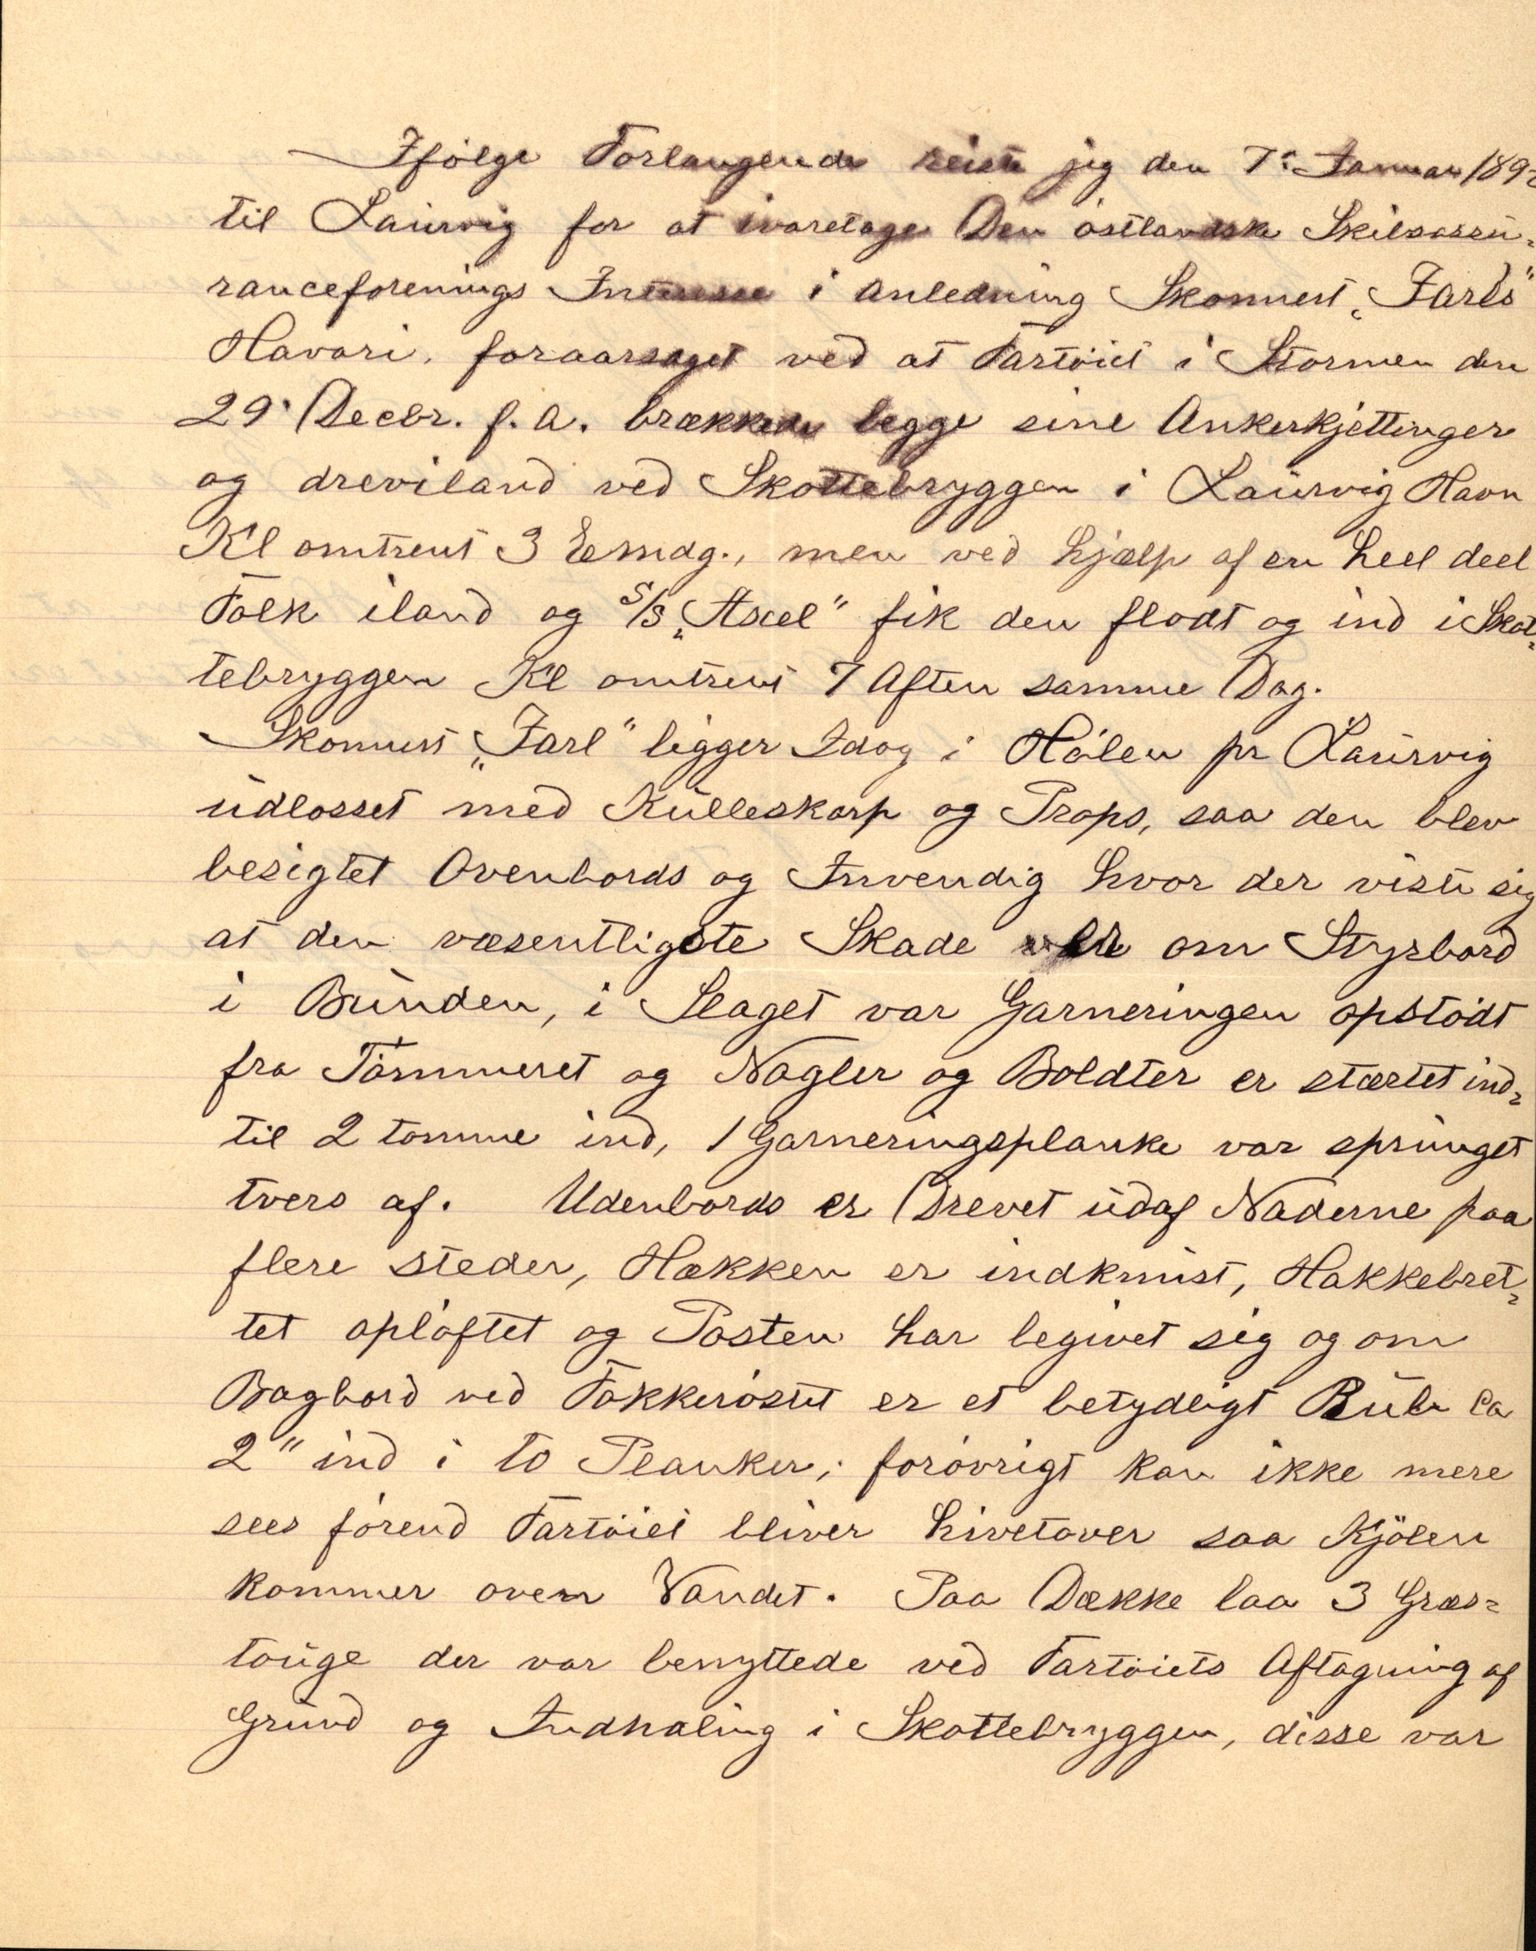 Ifølge Forlangende reiste jeg den 7de Januar 189
til Laurvig for at ivaretage Den østlandske Skibsassu-
ranceforenings Interesse i Anledning Skonnert „Jarls"
Havari, foraarsaget ved at Fartøiet i Stormen den
29' Decbr. f. A. brækkede begge sine Ankerkjettinger
og drev iland ved Skottebryggen i Laurvig Havn
Kl omtrent 3 Eftmdg., men ved Hjælp af en heel deel
Folk iland og S/S „Axel" fik den flodt og ind i Skot-
tebryggen Kl omtrent 7 Aften samme Dag.
Skonnert „Jarl" ligger Idag i Hølen pr Laurvig
udlosset med Kulleskarp og Props, saa den blev
besigtet Ovenbords og Invendig hvor der viste sig
at den væsentligste Skade var om Styrbord
i Bunden, i Slaget var Garneringen opstødt
fra Tømmeret og Nagler og Boldter er stærtet ind-
til 2 tomme ind, 1 Garneringsplanke var sprunget
tvers af. Udenbords er Drevet udaf Naderne paa
flere steder, Hækken er indknust, Hakkebret-
tet opløftet og Posten har begivet sig og om
Bagbord ved Fokkerøstet er et betydeligt Bule ca
2" ind i to Planker; forøvrigt kan ikke mere
sees førend Fartøiet bliver hivetover saa Kjölen
kommer oven Vandet. Paa Dække laa 3 Græs-
touge der var benyttede ved Fartøiets Aftagning af
Grund og Indhaling i Skottebryggen, disse var